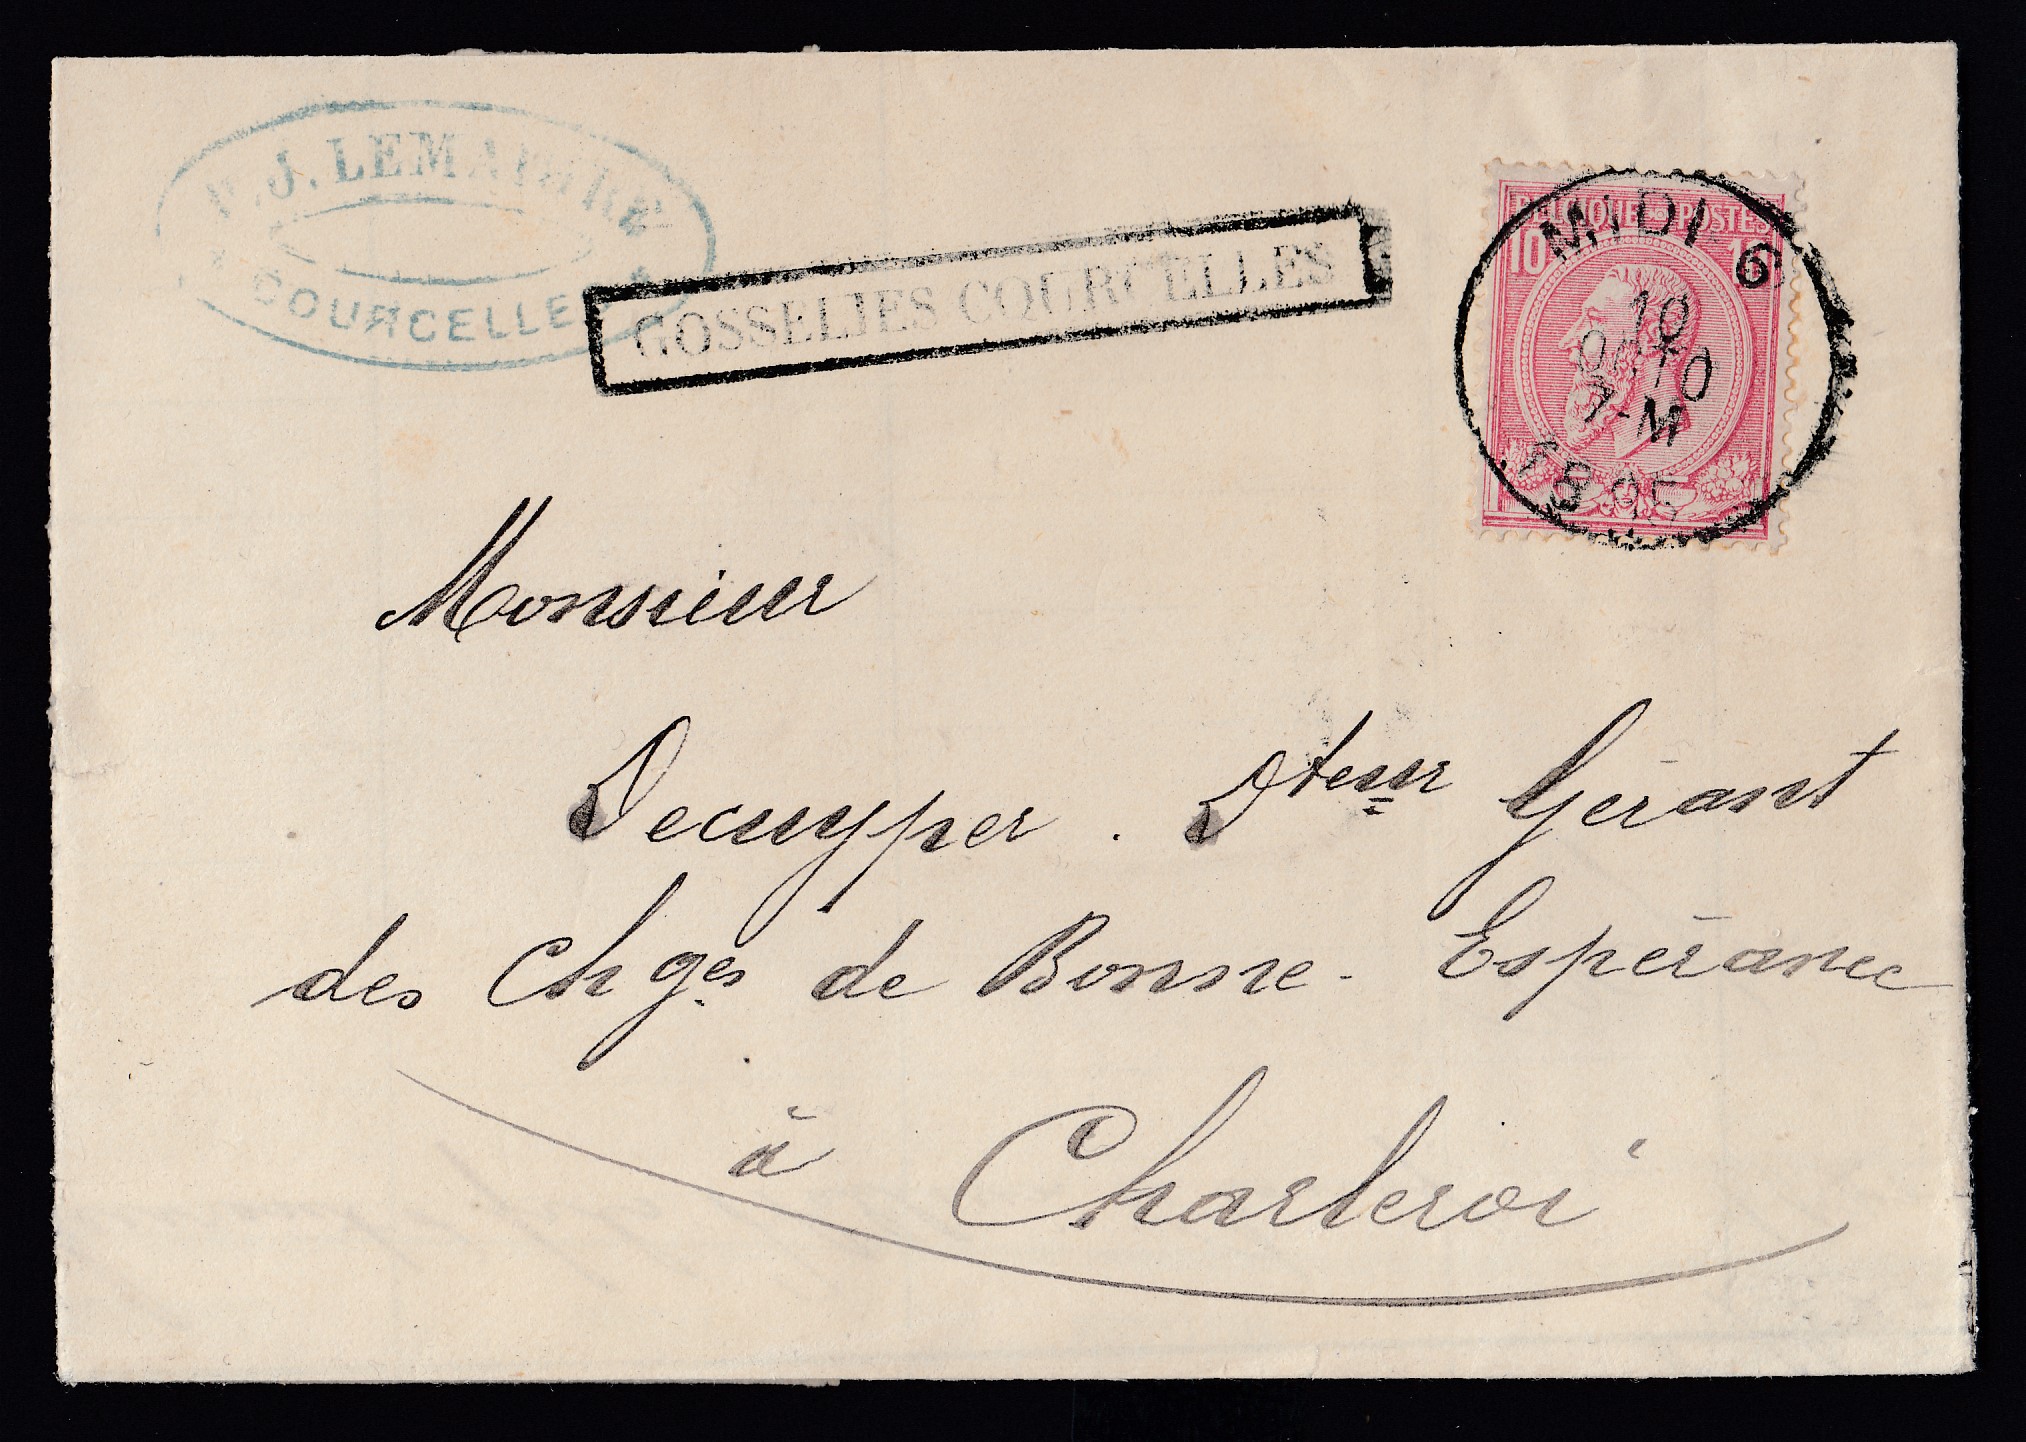 J. LEMAIGRE
COURCELLES
GOSSELIES COURCELLES
BELGIQUE POSTES
10 10
MIDI 6
10
OCTO
7-M
1895
Monsieur
Decuyper. Dteur Gérant
des Chges de Bonne-Espérance
à Charleroi